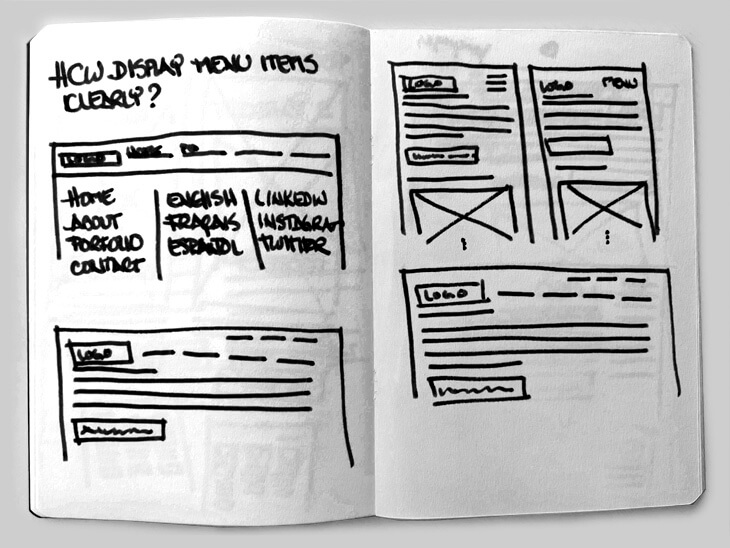 HOW DISPLAY MENU ITEMS
CLEARLY?
LOGO HOME
HOME
ABOUT
PORFOLIO
CONTACT
ENGLISH
FRAÇAIS
ESPAÑOL
LINKEDIN
INSTAGRAM
TWITTER
LOGO
LOGO
LOGO MENU
LOGO